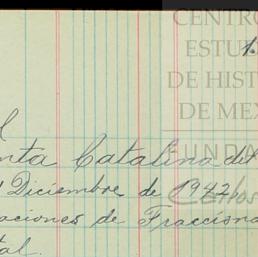 CENTRO
ESTU
DE HIST
DE MEX
FUNDA
nta Catalina del
Diciembre de 1942
aciones de Fracciona
tal.